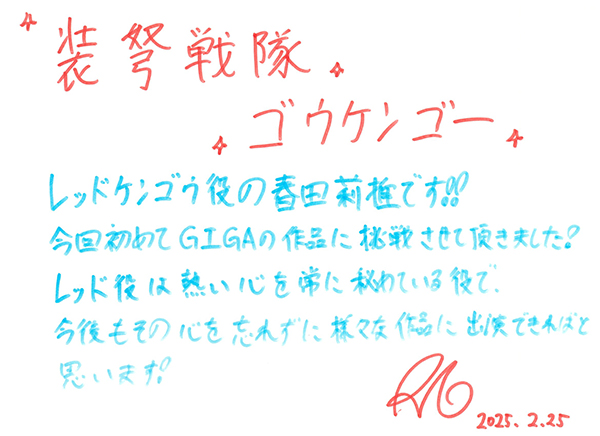 装弩戦隊
ゴウケンゴー
レッドケンゴウ役の春田莉推です!!
今回初めてGIGAの作品に挑戦させて頂きました!
レッド役は熱い心を常に秘めている役で、
今後もその心を忘れずに様々な作品に出演できればと
思います!
2025.2.25